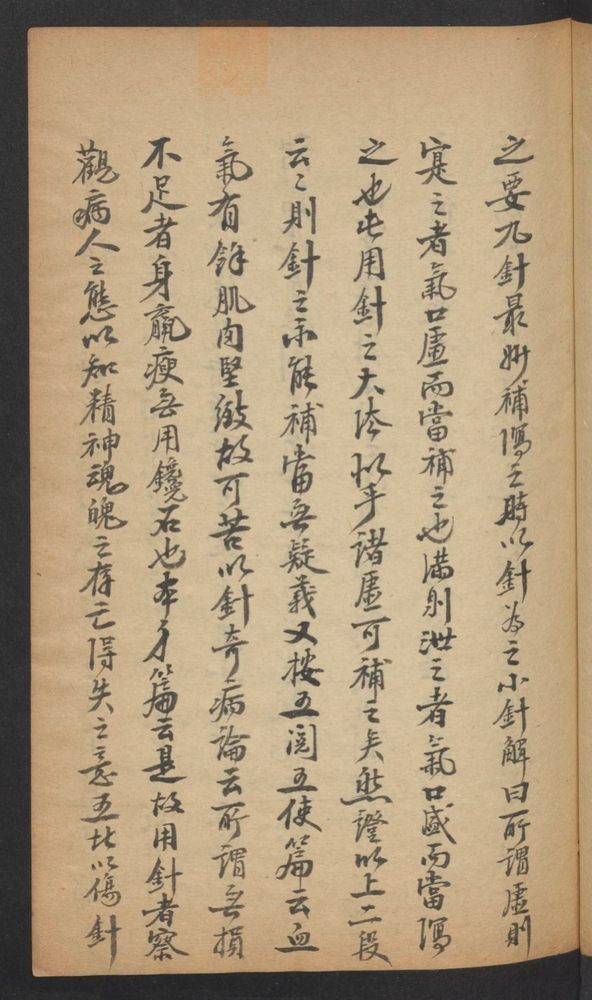 之要九針最妙補瀉之時以針為之小針解曰所謂虛則
寔之者氣口虛而當補之也滿則泄之者氣口盛而當瀉
之也此用針之大法似乎諸虛可補之矣然證以上二段
云〻則針之不能補當無疑義又按五閱五使篇云血
氣有餘肌肉堅緻故可苦以針奇病論云所謂無損
不足者身羸瘦無用鑱石也本才篇云是故用針者察
觀病人之態以知精神魂魄之存亡得失之意五比以傷針